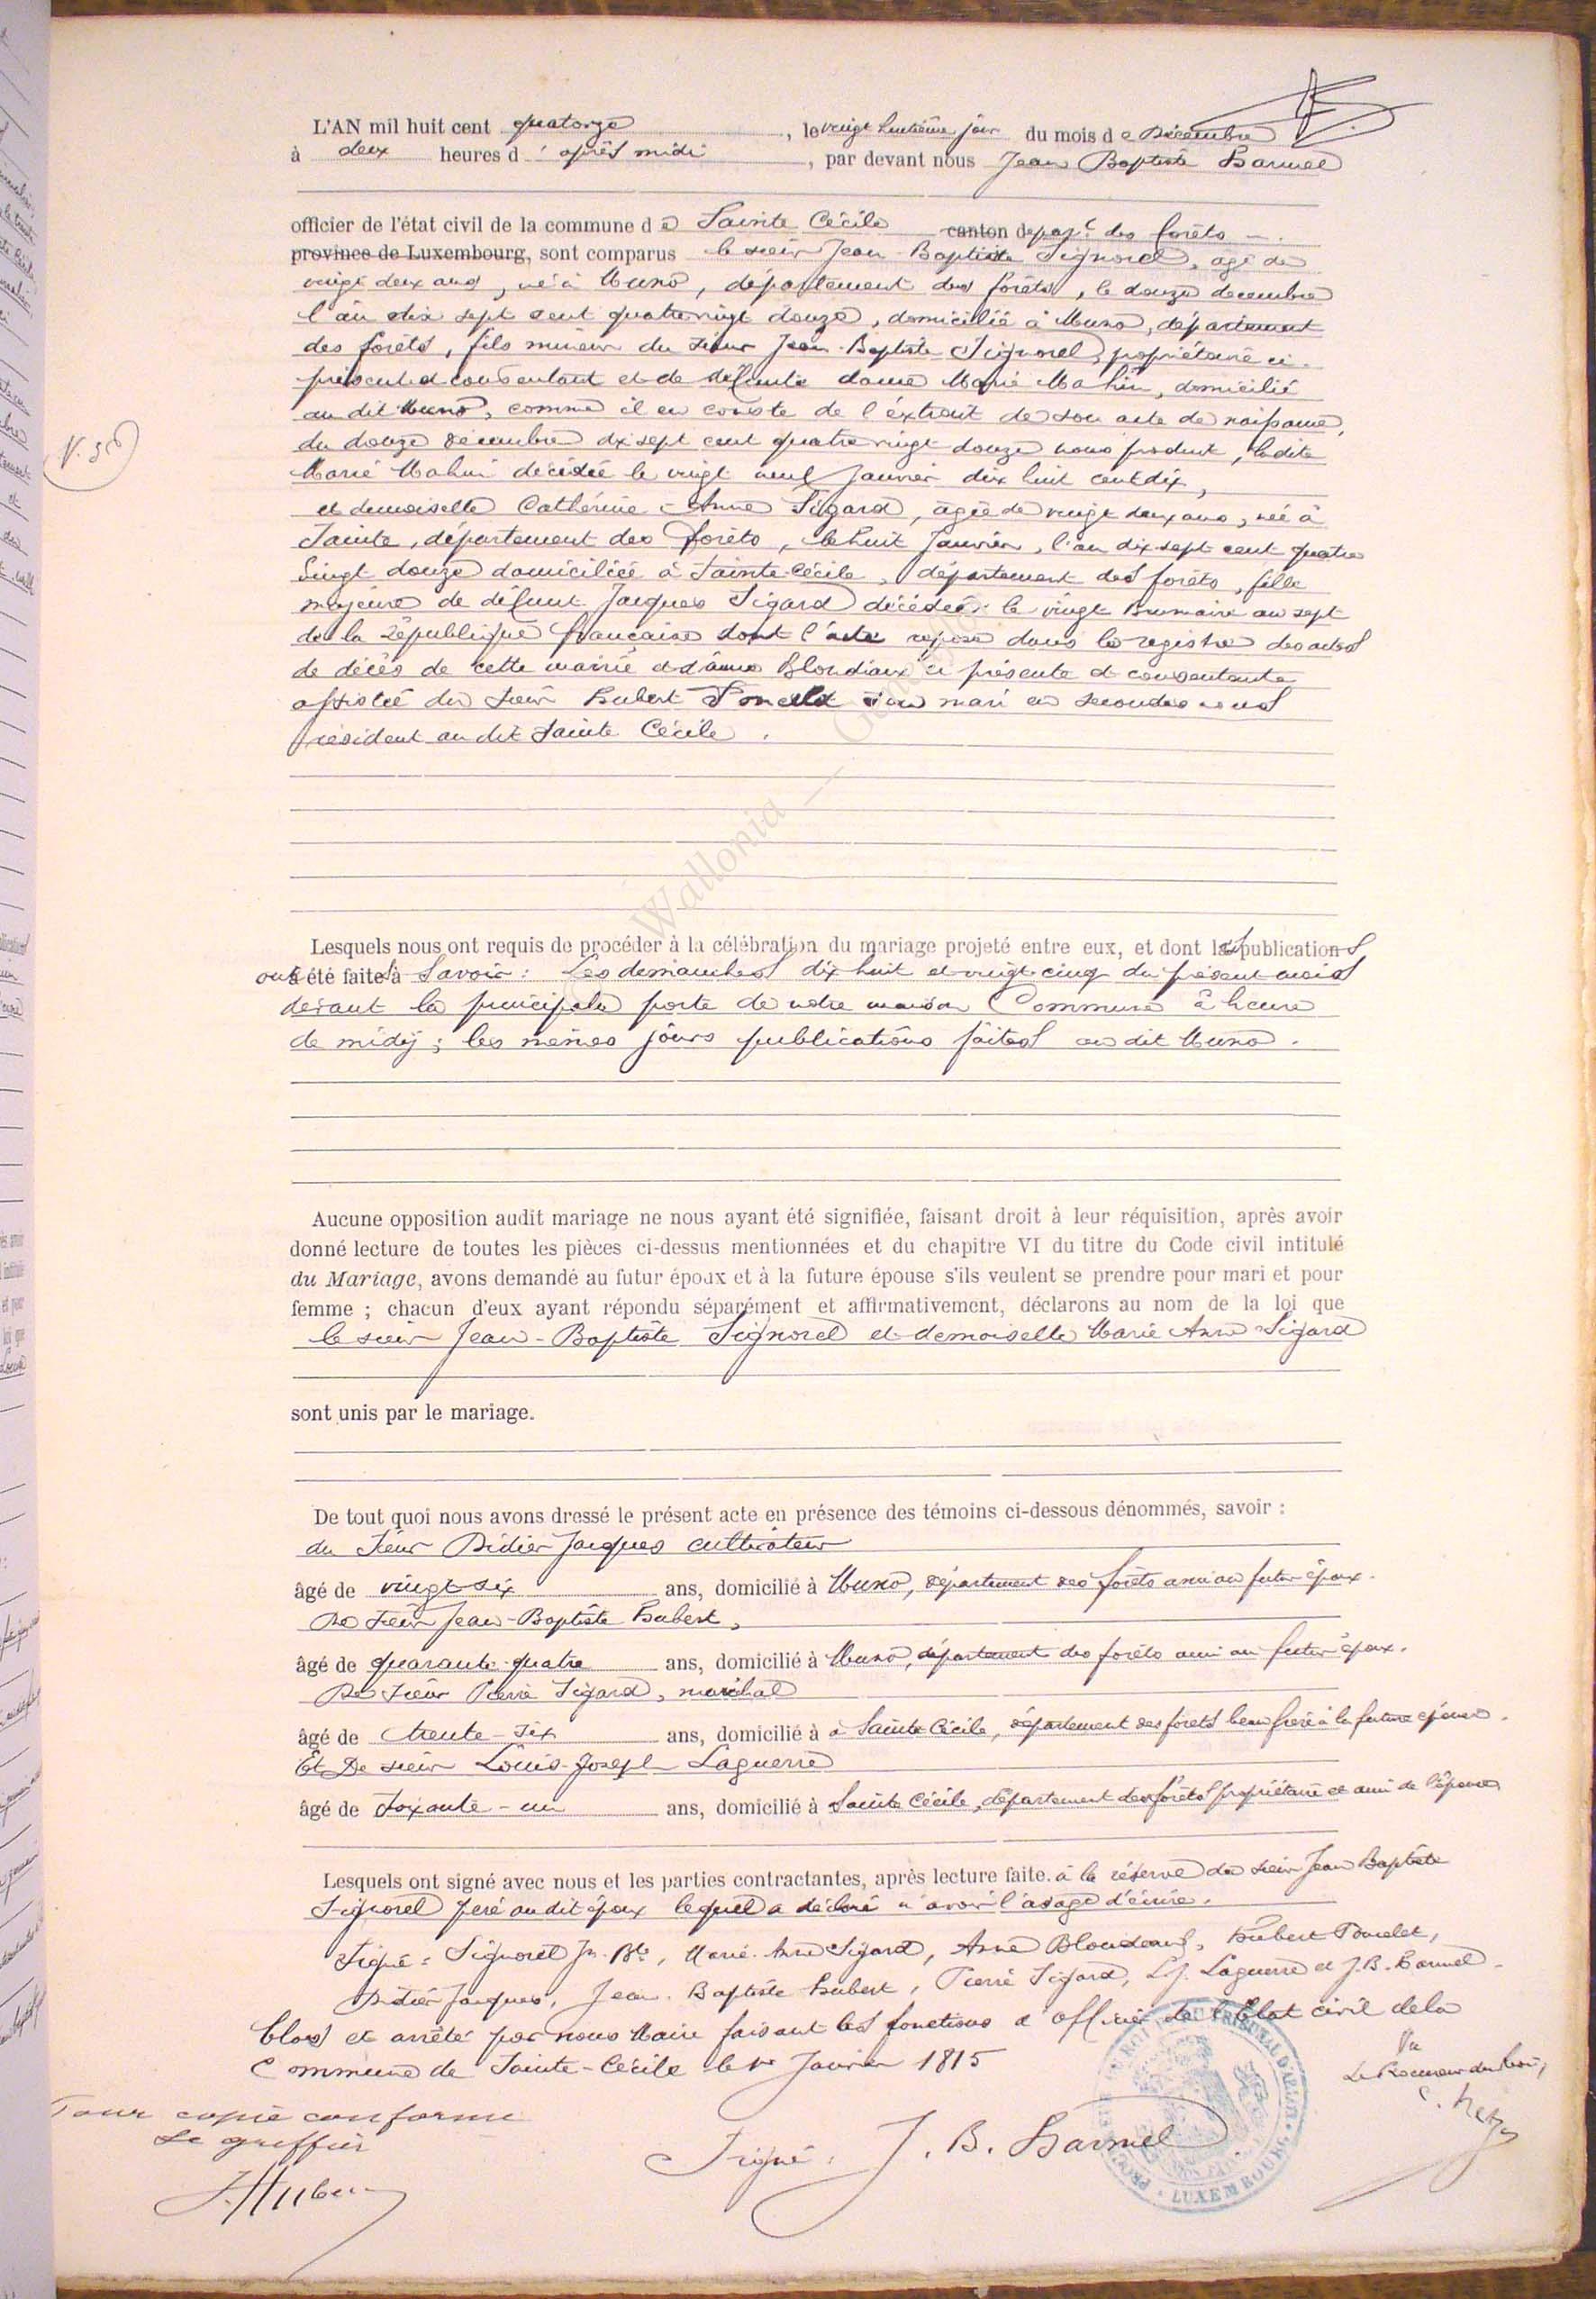 L'AN mil huit cent quatorze, le vingt huitième jour du mois de Décembre
à deux heures d'après midi, par devant nous Jean Baptiste Harmel
officier de l'état civil de la commune de Sainte Cécile canton depart. des forêts
province de Luxembourg, sont comparus le sieur Jean-Baptiste Signorel, agé de
vingt deux ans, né à Muno, département des forêts, le douze decembre
l'an dix sept cent quatre vingt douze, domicilié à Muno, département
des forêts, fils mineur du sieur Jean-Baptiste Signorel, propriétaire ci-
présent et consentant et de défunte dame Marie Mahin, domicilié
au dit Muno, comme il en conste de l'éxtrait de son acte de naissance,
du douze décembre dix sept cent quatre vingt douze nous produit, ladite
Marie Mahin décédée le vingt neuf Janvier dix huit cent dix,
et demoiselle Cathérine-Anne Sigard, agée de vingt deux ans, née à
Sainte, département des forêts, le huit Janvier, l'an dix sept cent quatre
vingt douze domiciliée à Sainte-Cécile, département des forêts, fille
majeure de défunt Jacques Sigard décédé le vingt Brumaire an sept
de la République française dont l'acte repose dans le registre des actes
de décès de cette mairie et d'Anne Blondiaux ci présente et consentante
assistée du sieur Hubert Poncelet son mari en secondes noces
résident au dit Sainte Cécile.
Lesquels nous ont requis de procéder à la célébration du mariage projeté entre eux, et dont les publications
ont été faites à Savoir: Les dimanches dix huit et vingt-cinq du présent mois
devant la principale porte de notre maison Commune à heure
de midy; les mêmes jours publications faites au dit Muno.
Aucune opposition audit mariage ne nous ayant été signifiée, faisant droit à leur réquisition, après avoir
donné lecture de toutes les pièces ci-dessus mentionnées et du chapitre VI du titre du Code civil intitulé
du Mariage, avons demandé au futur époux et à la future épouse s'ils veulent se prendre pour mari et pour
femme ; chacun d'eux ayant répondu séparément et affirmativement, déclarons au nom de la loi que
le sieur Jean-Baptiste Signorel et demoiselle Marie Anne Sigard
sont unis par le mariage.
De tout quoi nous avons dressé le présent acte en présence des témoins ci-dessous dénommés, savoir :
du Sieur Didier Jacques cultivateur
âgé de vingt-six ans, domicilié à Muno, département des forêts ami au futur époux.
De Sieur Jean-Baptiste Hubert,
âgé de quarante-quatre ans, domicilié à Muno, département des forêts ami au futur époux.
De Sieur Pierre Sigard, maréchal
âgé de trente-six ans, domicilié à à Sainte Cécile, département des forêts beau frère à la future épouse.
Et De sieur Louis-Joseph Laguerre
âgé de soixante-un ans, domicilié à Sainte Cécile, département des forêts propriétaire et ami de l'épouse
Lesquels ont signé avec nous et les parties contractantes, après lecture faite. à la réserve du sieur Jean Baptiste
Signorel père au dit époux lequel a déclaré n'avoir l'usage d'écrire.
Signé: Signorel Jn. Bte, Marie-Anne Sigard, Anne Blondeaux, Hubert Poncelet,
Didier Jacques, Jean-Baptiste Hubert, Pierre Sigard, L.J. Laguerre et J.B. Harmel.
Clos et arrêté par nous Maire faisant les fonctions d'officier de l'Etat civil de la
Commune de Sainte-Cécile le 1er Janvier 1815
Vu
Le Procureur du Roi,
Pour copie conforme
Le greffier
Signé: J. B. Harmel
LUXEMBOURG
Wallonia